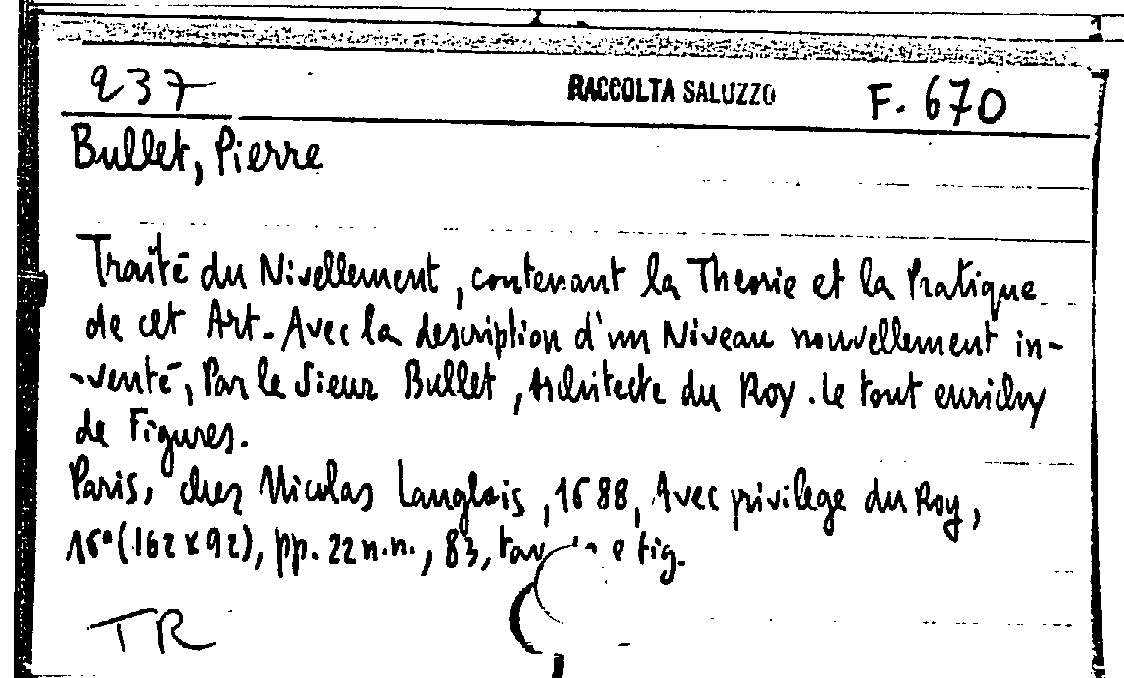 237 RACCOLTA SALUZZO F. 670
Bullet, Pierre
Traité du Nivellement, contenant la Theorie et la Pratique
de cet Art. Avec la description d'un Niveau nouvellement in-
-venté, Par le Sieur Bullet, Architecte du Roy. Le tout enrichy
de Figures.
Paris, chez Nicolas Langlois, 1688, Avec privilege du Roy,
16° (162 x 92), pp. 22 n.n., 83, e fig.
TR